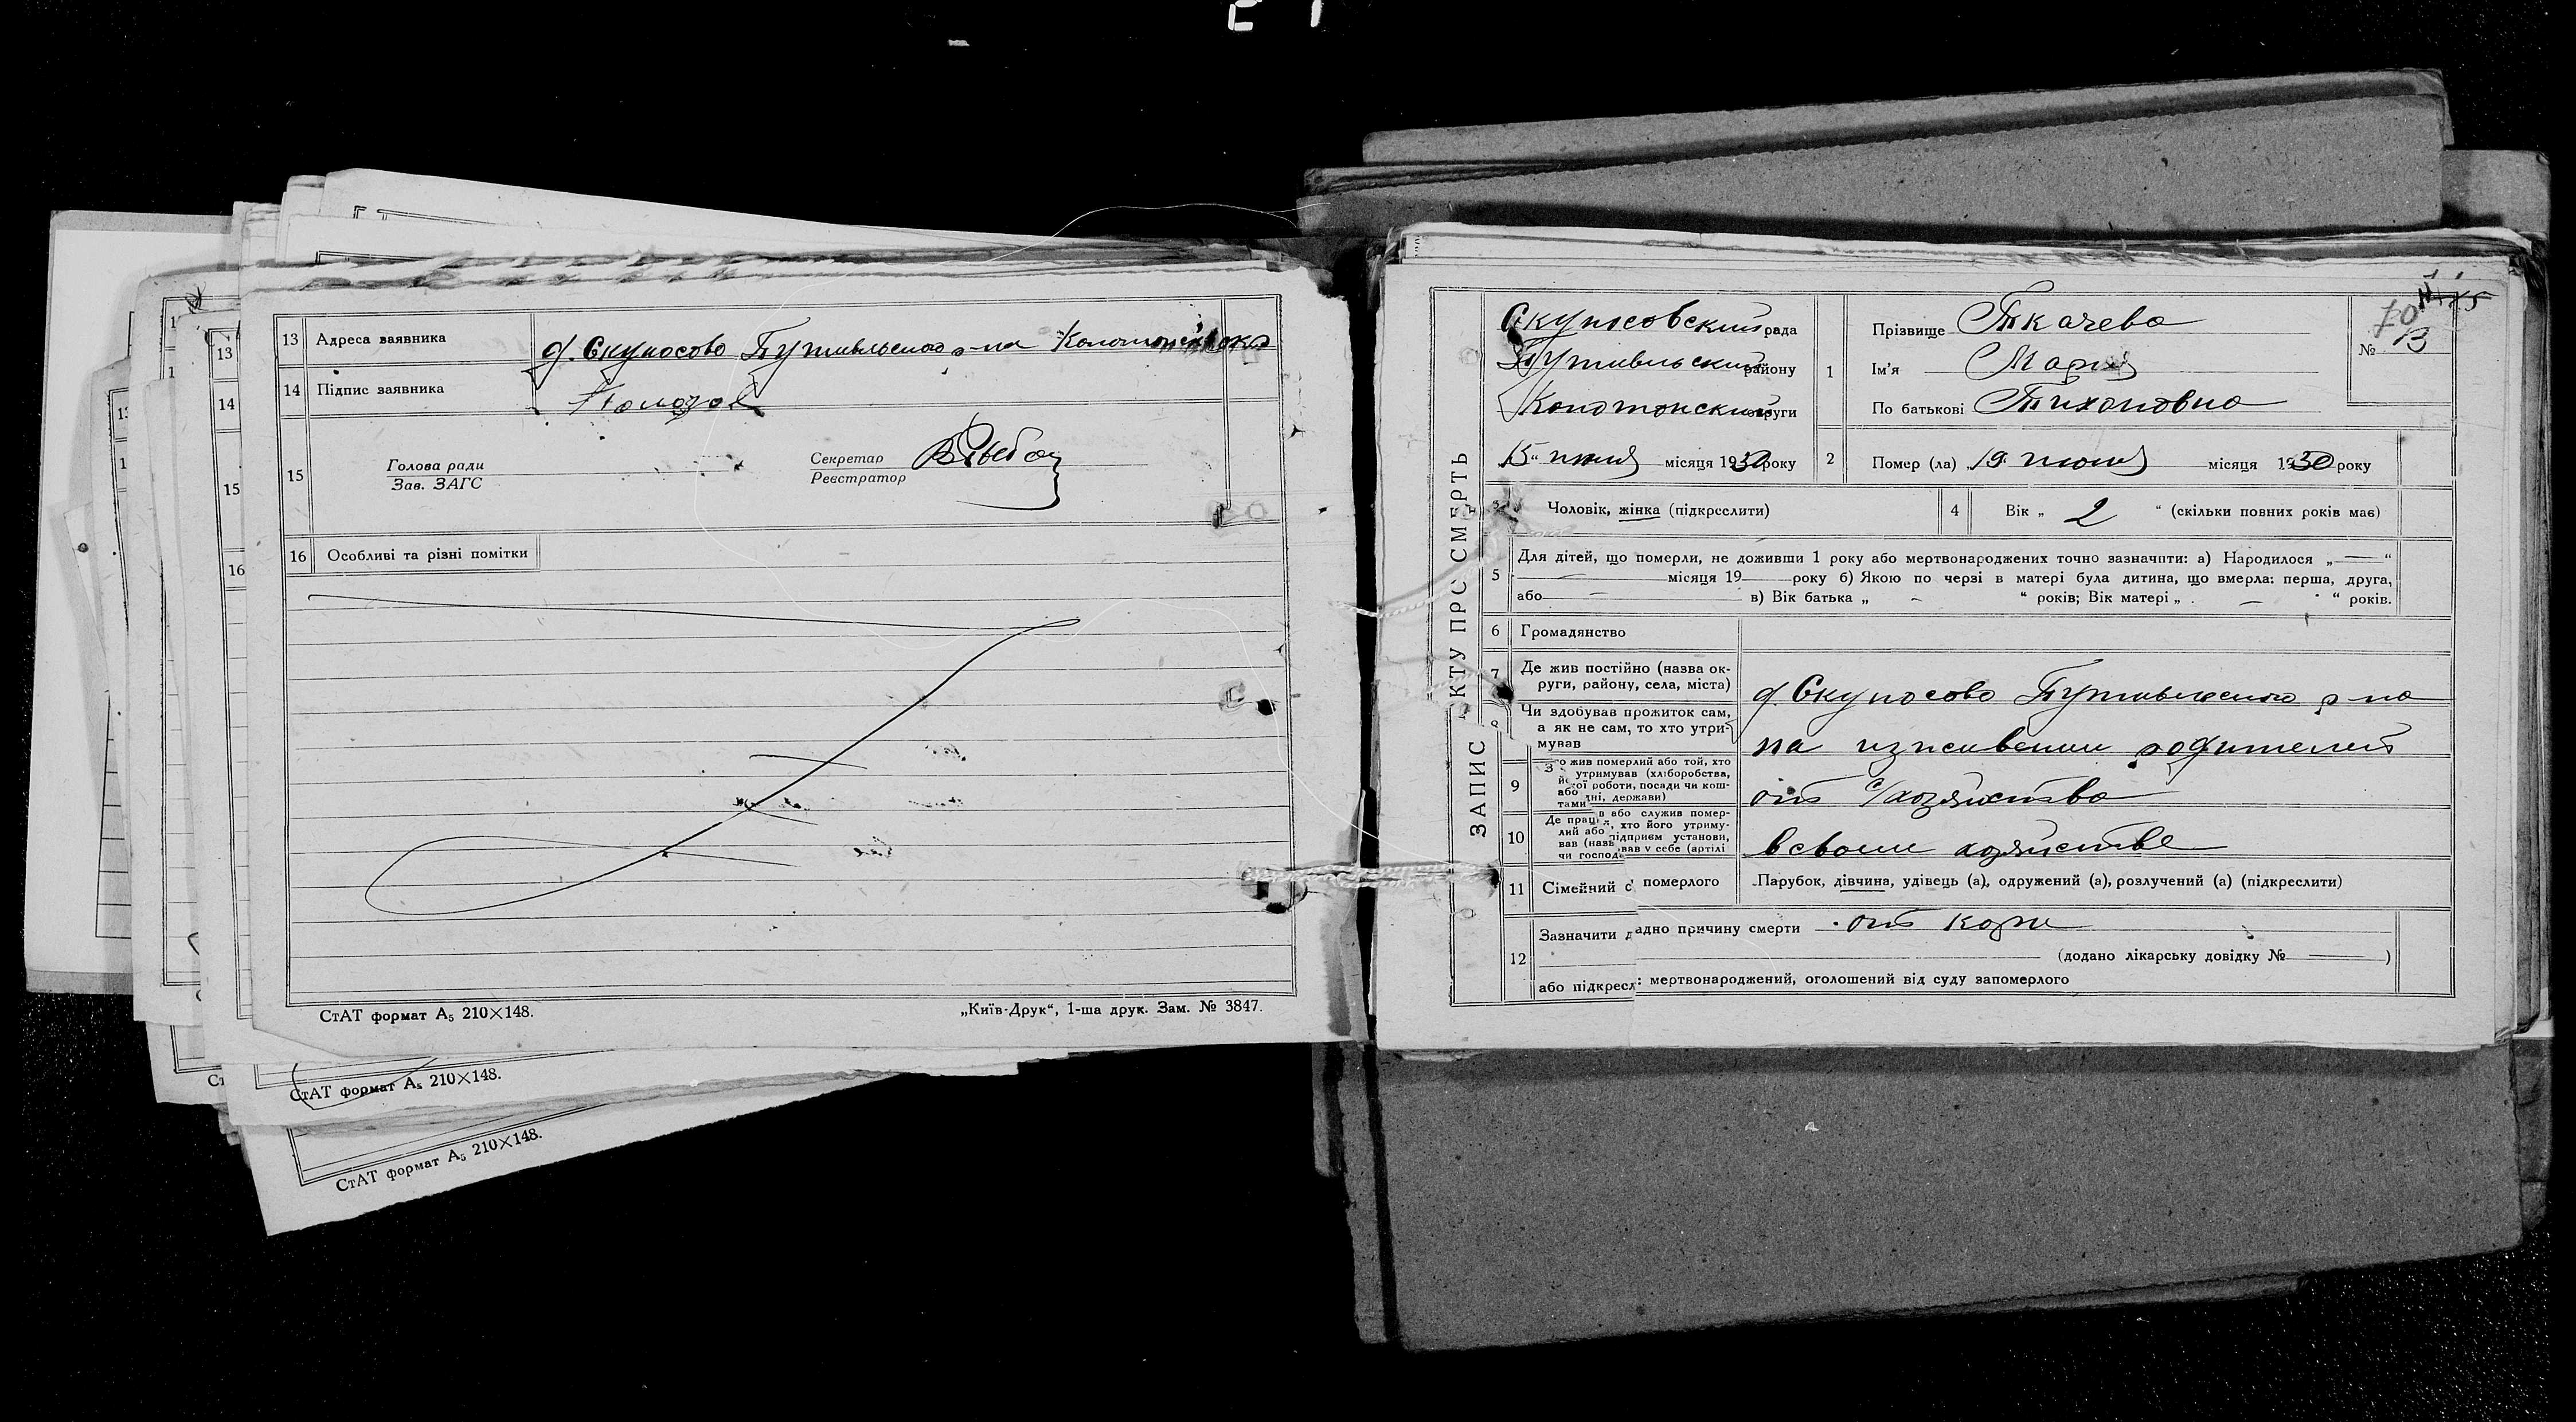 13 Адреса заявника д. Скуносово Путивльского р-на Конотопск. ок.
14 Підпис заявника
15 Голова ради
Зав. ЗАГС
Секретар
Реєстратор
16 Особливі та різні помітки
СтАТ формат А₅ 210×148. „Київ-Друк“, 1-ша друк. Зам. № 3847.
СтАТ формат А₅ 210×148.
СтАТ формат А₅ 210×148.
ЗАПИС АКТУ ПРО СМЕРТЬ
Скуносовский рада
Путивльский району
Конотопский округи
15 „ июня місяця 1930 року
1 Прізвище Ткачева
Ім'я Мария
По батькові Тихоновна
№ 13
2 Помер (ла) „ 19 июня місяця 1930 року
3 Чоловік, жінка (підкреслити)
4 Вік „ 2 “ (скільки повних років має)
5 Для дітей, що померли, не доживши 1 року або мертвонароджених точно зазначити: а) Народилося „ — “
місяця 19 — року б) Якою по черзі в матері була дитина, що вмерла: перша, друга,
або — в) Вік батька „ - “ років; Вік матері „ — “ років.
6 Громадянство
7 Де жив постійно (назва ок-
руги, району, села, міста) д. Скуносово Путивльского р-на
8 Чи здобував прожиток сам,
а як не сам, то хто утри-
мував на иждивении родителей
9 З го жив померлий або той, хто
йо утримував (хліборобства,
або тої роботи, посади чи кош-
тами ині, держави) от с/хозяйства
10 Де працю в або служив помер-
лий або , хто його утриму-
вав (назв підприєм установи,
чи господа вав у себе (артілі в своем хозяйстве
11 Сімейний с померлого Парубок, дівчина, удівець (а), одружений (а), розлучений (а) (підкреслити)
12 Зазначити д адно причину смерти от кори
(додано лікарську довідку № — )
або підкресл : мертвонароджений, оголошений від суду запомерлого